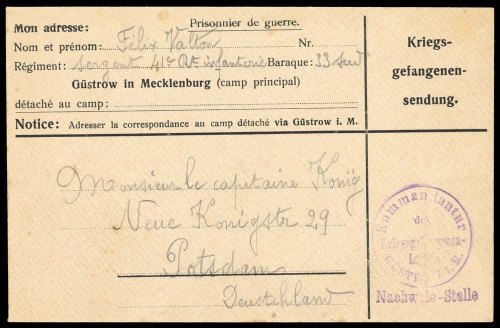 Mon adresse: Prisonnier de guerre.
Nom et prénom: Félix Valton Nr.
Régiment: sergent 41e RI infanterie Baraque: 33 sud
Güstrow in Mecklenburg (camp principal)
détaché au camp:
Notice: Adresser la correspondance au camp détaché via Güstrow i. M.
Kriegs-
gefangenen-
sendung.
Monsieur le capitaine König
Neue Konigstr 29
Potsdam
Deutschland
Kommandantur
des
Kriegsgefangenen-
GÜSTROW i. M.
Nachweis-Stelle